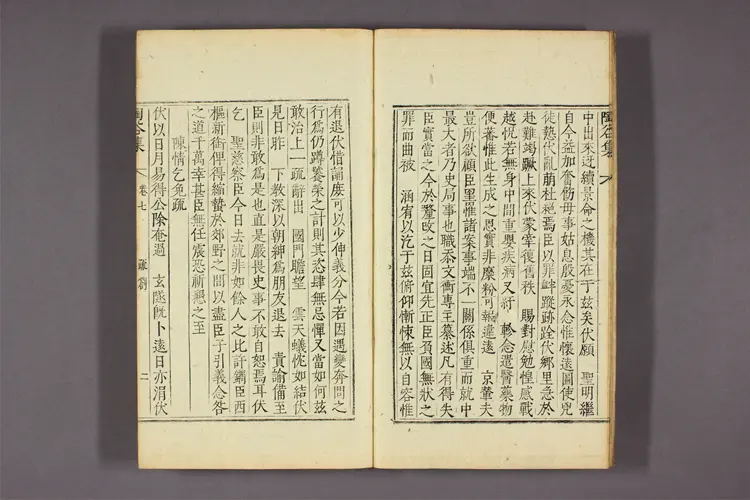 中出來迓續景命之機其在于玆矣伏願 聖明繼
自今益加奮勵毋事姑息殷憂永念惟懷遠圖使兇
徒熱伏亂萠杜絶焉臣以罪釁蹤跡跧伏鄉里急於
赴難竭蹶上來伏蒙幸復舊秩 賜對慰勉惶感戰
越怳若無身中間重嬰疾病又紆 軫念遣醫藥物
便蕃惟此生成之恩實非糜粉可報違遠 京輦夫
豈所欲顧臣罹惟諸案事端不一關係俱重而就中
最大者乃史局事也職忝文衡專主纂述凡有得失
臣實當之今於釐改之日固宜先正臣負國無狀之
罪而曲被 涵宥以迄于玆俯仰慚悚無以自容惟
有退伏惜論庶可以少伸義分今若因遇變奔問之
行爲仍蹲饕榮之計則其恣肆無忌憚又當如何玆
敢治上一疏辭出 國門瞻望 雲天蟻忱如結伏
見日昨 下教深以朝紳爲朋友退去 責諭備至
臣則非敢爲是也直是嚴畏史事不敢自恕焉耳伏
乞 聖慈察臣今日去就非如餘人之比許鐫臣西
樞新銜俾得縮蟄於郊野之間以盡臣子引義念咎
之道千萬幸甚臣無任震恐祈懇之至
陳情乞免疏
伏以日月易得公除奄過 玄隧旣卜遠日亦涓伏
陶谷集
卷七
疏劄
二